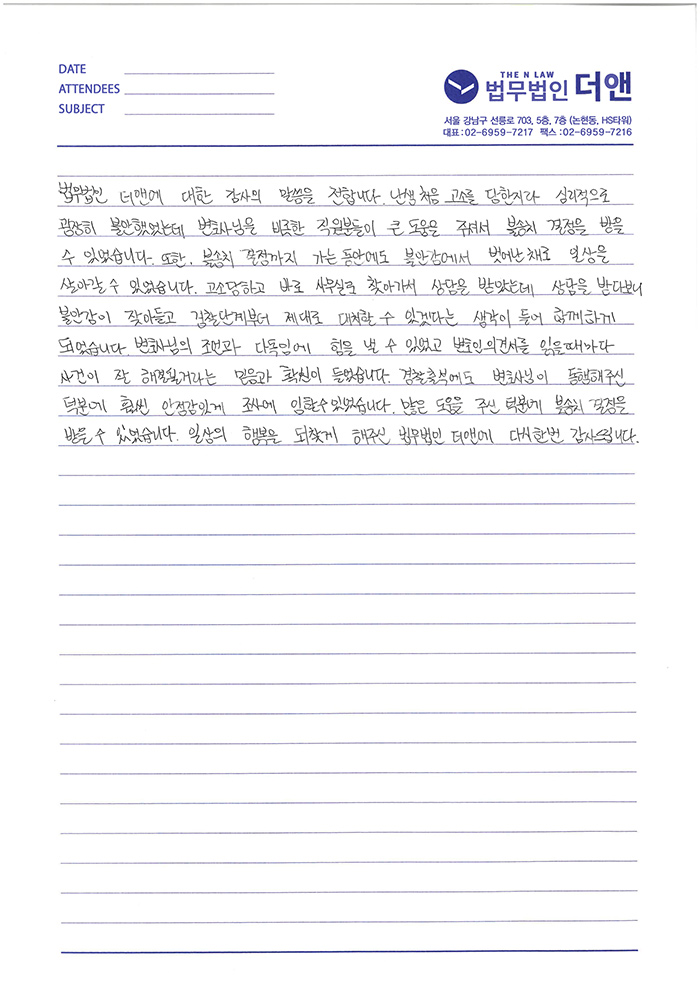 DATE
ATTENDEES
SUBJECT
THE N LAW
법무법인 더앤
서울 강남구 선릉로 703, 5층, 7층 (논현동, HS타워)
대표:02-6959-7217 팩스:02-6959-7216
법무법인 더앤에 대한 감사의 말씀을 전합니다. 난생 처음 고소를 당한지라 심리적으로
굉장히 불안했었는데 변호사님을 비롯한 직원분들이 큰 도움을 주셔서 불송치 결정을 받을
수 있었습니다. 또한, 불송치 결정까지 가는 동안에도 불안감에서 벗어난 채로 일상을
살아갈 수 있었습니다. 고소당하고 바로 사무실로 찾아가서 상담을 받았는데 상담을 받다보니
불안감이 잦아들고 경찰단계부터 제대로 대처할 수 있겠다는 생각이 들어 함께하게
되었습니다. 변호사님의 조언과 다독임에 힘을 낼 수 있었고 변호인의견서를 읽을때마다
사건이 잘 해결될거라는 믿음과 확신이 들었습니다. 경찰출석에도 변호사님이 동행해주신
덕분에 훨씬 안정감있게 조사에 임할수있었습니다. 많은 도움을 주신 덕분에 불송치 결정을
받을 수 있었습니다. 일상의 행복을 되찾게 해주신 법무법인 더앤에 다시한번 감사드립니다.